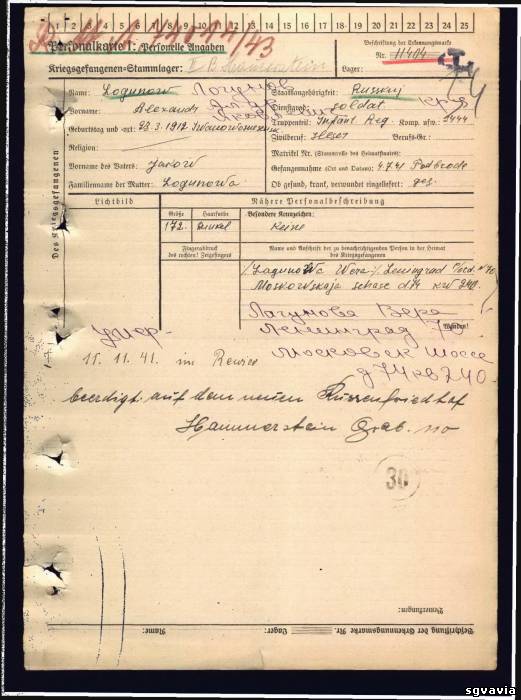 1 2 3 4 5 6 7 8 9 10 11 12 13 14 15 16 17 18 19 20 21 22 23 24 25
Personalkarte I: Personelle Angaben
Beschriftung der Erkennungsmarke
Nr. 11404
Kriegsgefangenen-Stammlager: II B Hammerstein
Lager:
Des Kriegsgefangenen
Name: Logunow Логунов
Staatsangehörigkeit: Russkij
Vorname: Alexandr
Dienstgrad: soldat
Truppenteil: Infant Reg. Komp. usw.:
Geburtstag und -ort: 23.3.1912
Religion:
Zivilberuf: Berufs-Gr.:
Matrikel Nr. (Stammrolle des Heimatstaates):
Vorname des Vaters: Jakow
Gefangennahme (Ort und Datum): 4.7.41 Podbrode
Familienname der Mutter: Logunowa
Ob gesund, krank, verwundet eingeliefert: ges.
Lichtbild
Nähere Personalbeschreibung
Größe Haarfarbe Besondere Kennzeichen:
172. dunkel Keine
Fingerabdruck des rechten! Zeigefingers
Name und Anschrift der zu benachrichtigenden Person in der Heimat des Kriegsgefangenen
Logunowa Wera Leningrad
Moskowskaja d74 kw 240.
Логунова Вера
Wenden!
Умер- Ленинград 70
15.11.41. im Revier Московск шоссе
д 74 кв 240.
beerdigt auf dem neuen Russenfriedhof
Hammerstein Grab. no
30
Bemerkungen:
Name: Lager: Beschriftung der Erkennungsmarke Nr.
sgvavia